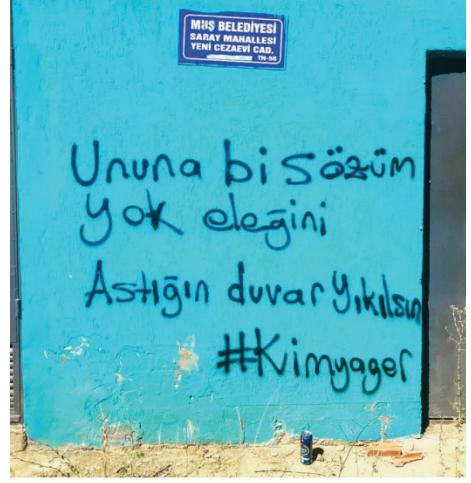 MUŞ BELEDİYESİ
SARAY MAHALLESİ
YENİ CEZAEVİ CAD.
TN-56
Ununa bi sözüm
yok eleğini
Astığın duvar yıkılsın
#Kimyager